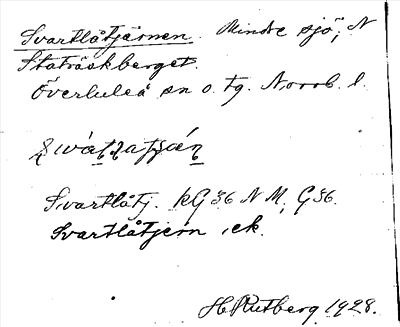 Svartlåtjärnen. Mindre sjö, N
Staträskberget.
Överluleå sn o. tg. Norrb. l.
Svartlåtj. KG 36 N M, G 36.
Svartlåtjern, ek.
H. Rutberg 1928.